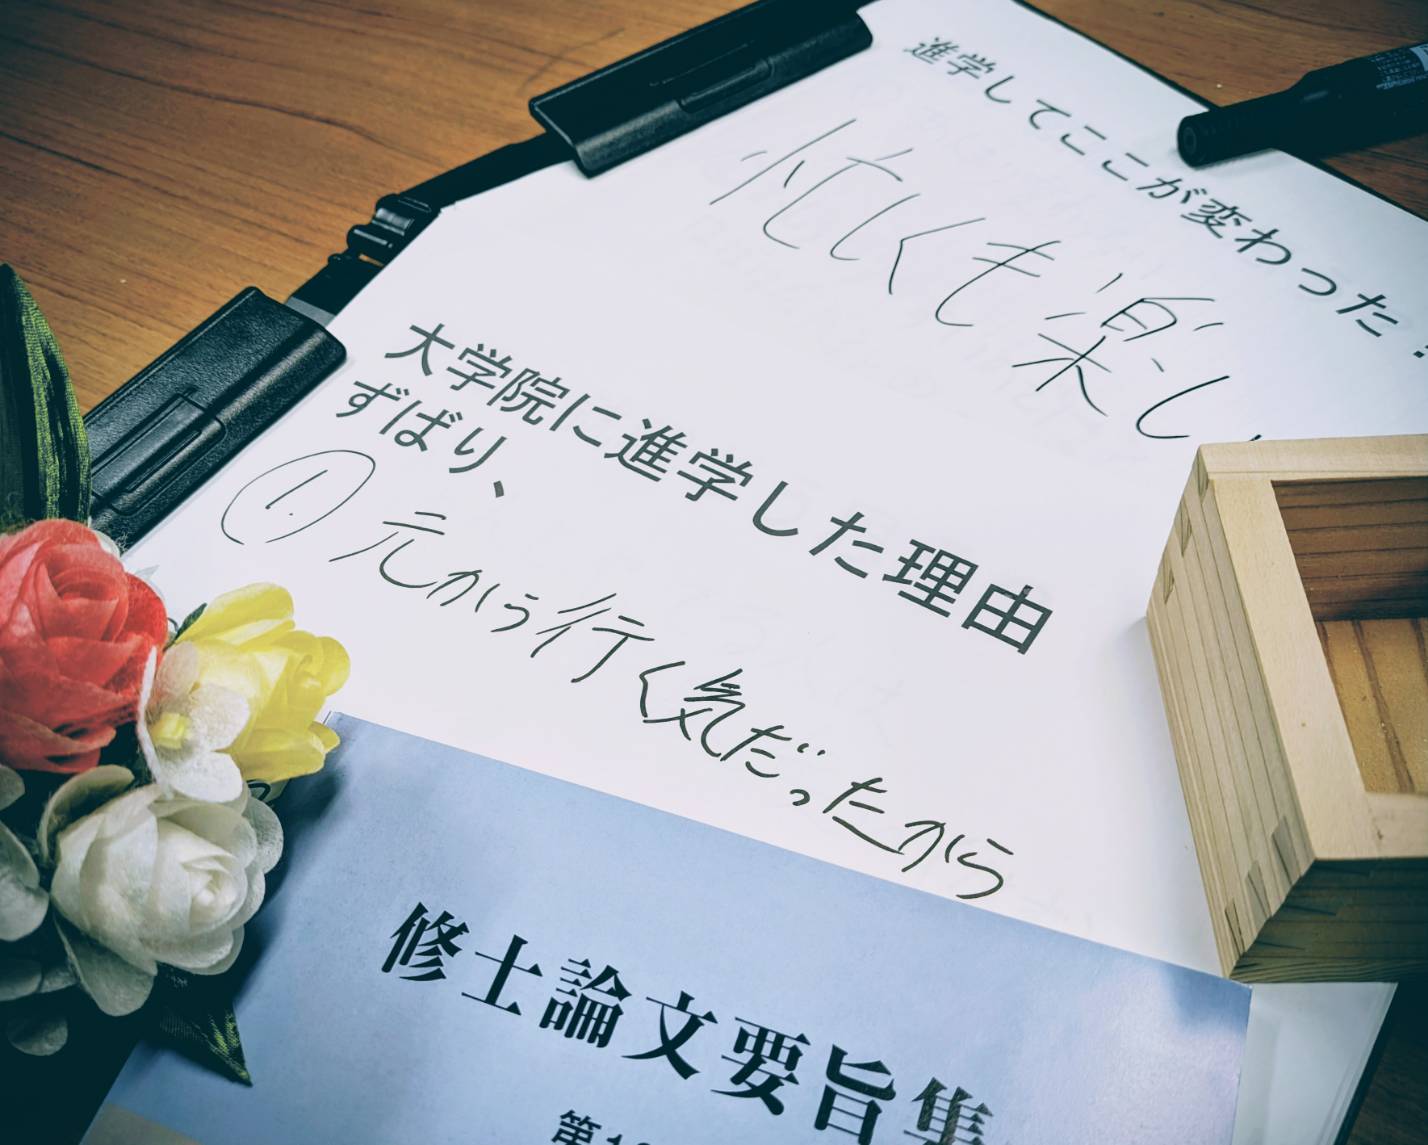 進学してここが変わった
忙しくも楽し
大学院に進学した理由
ずばり、
① 元から行く気だったから
修士論文要旨集
第1